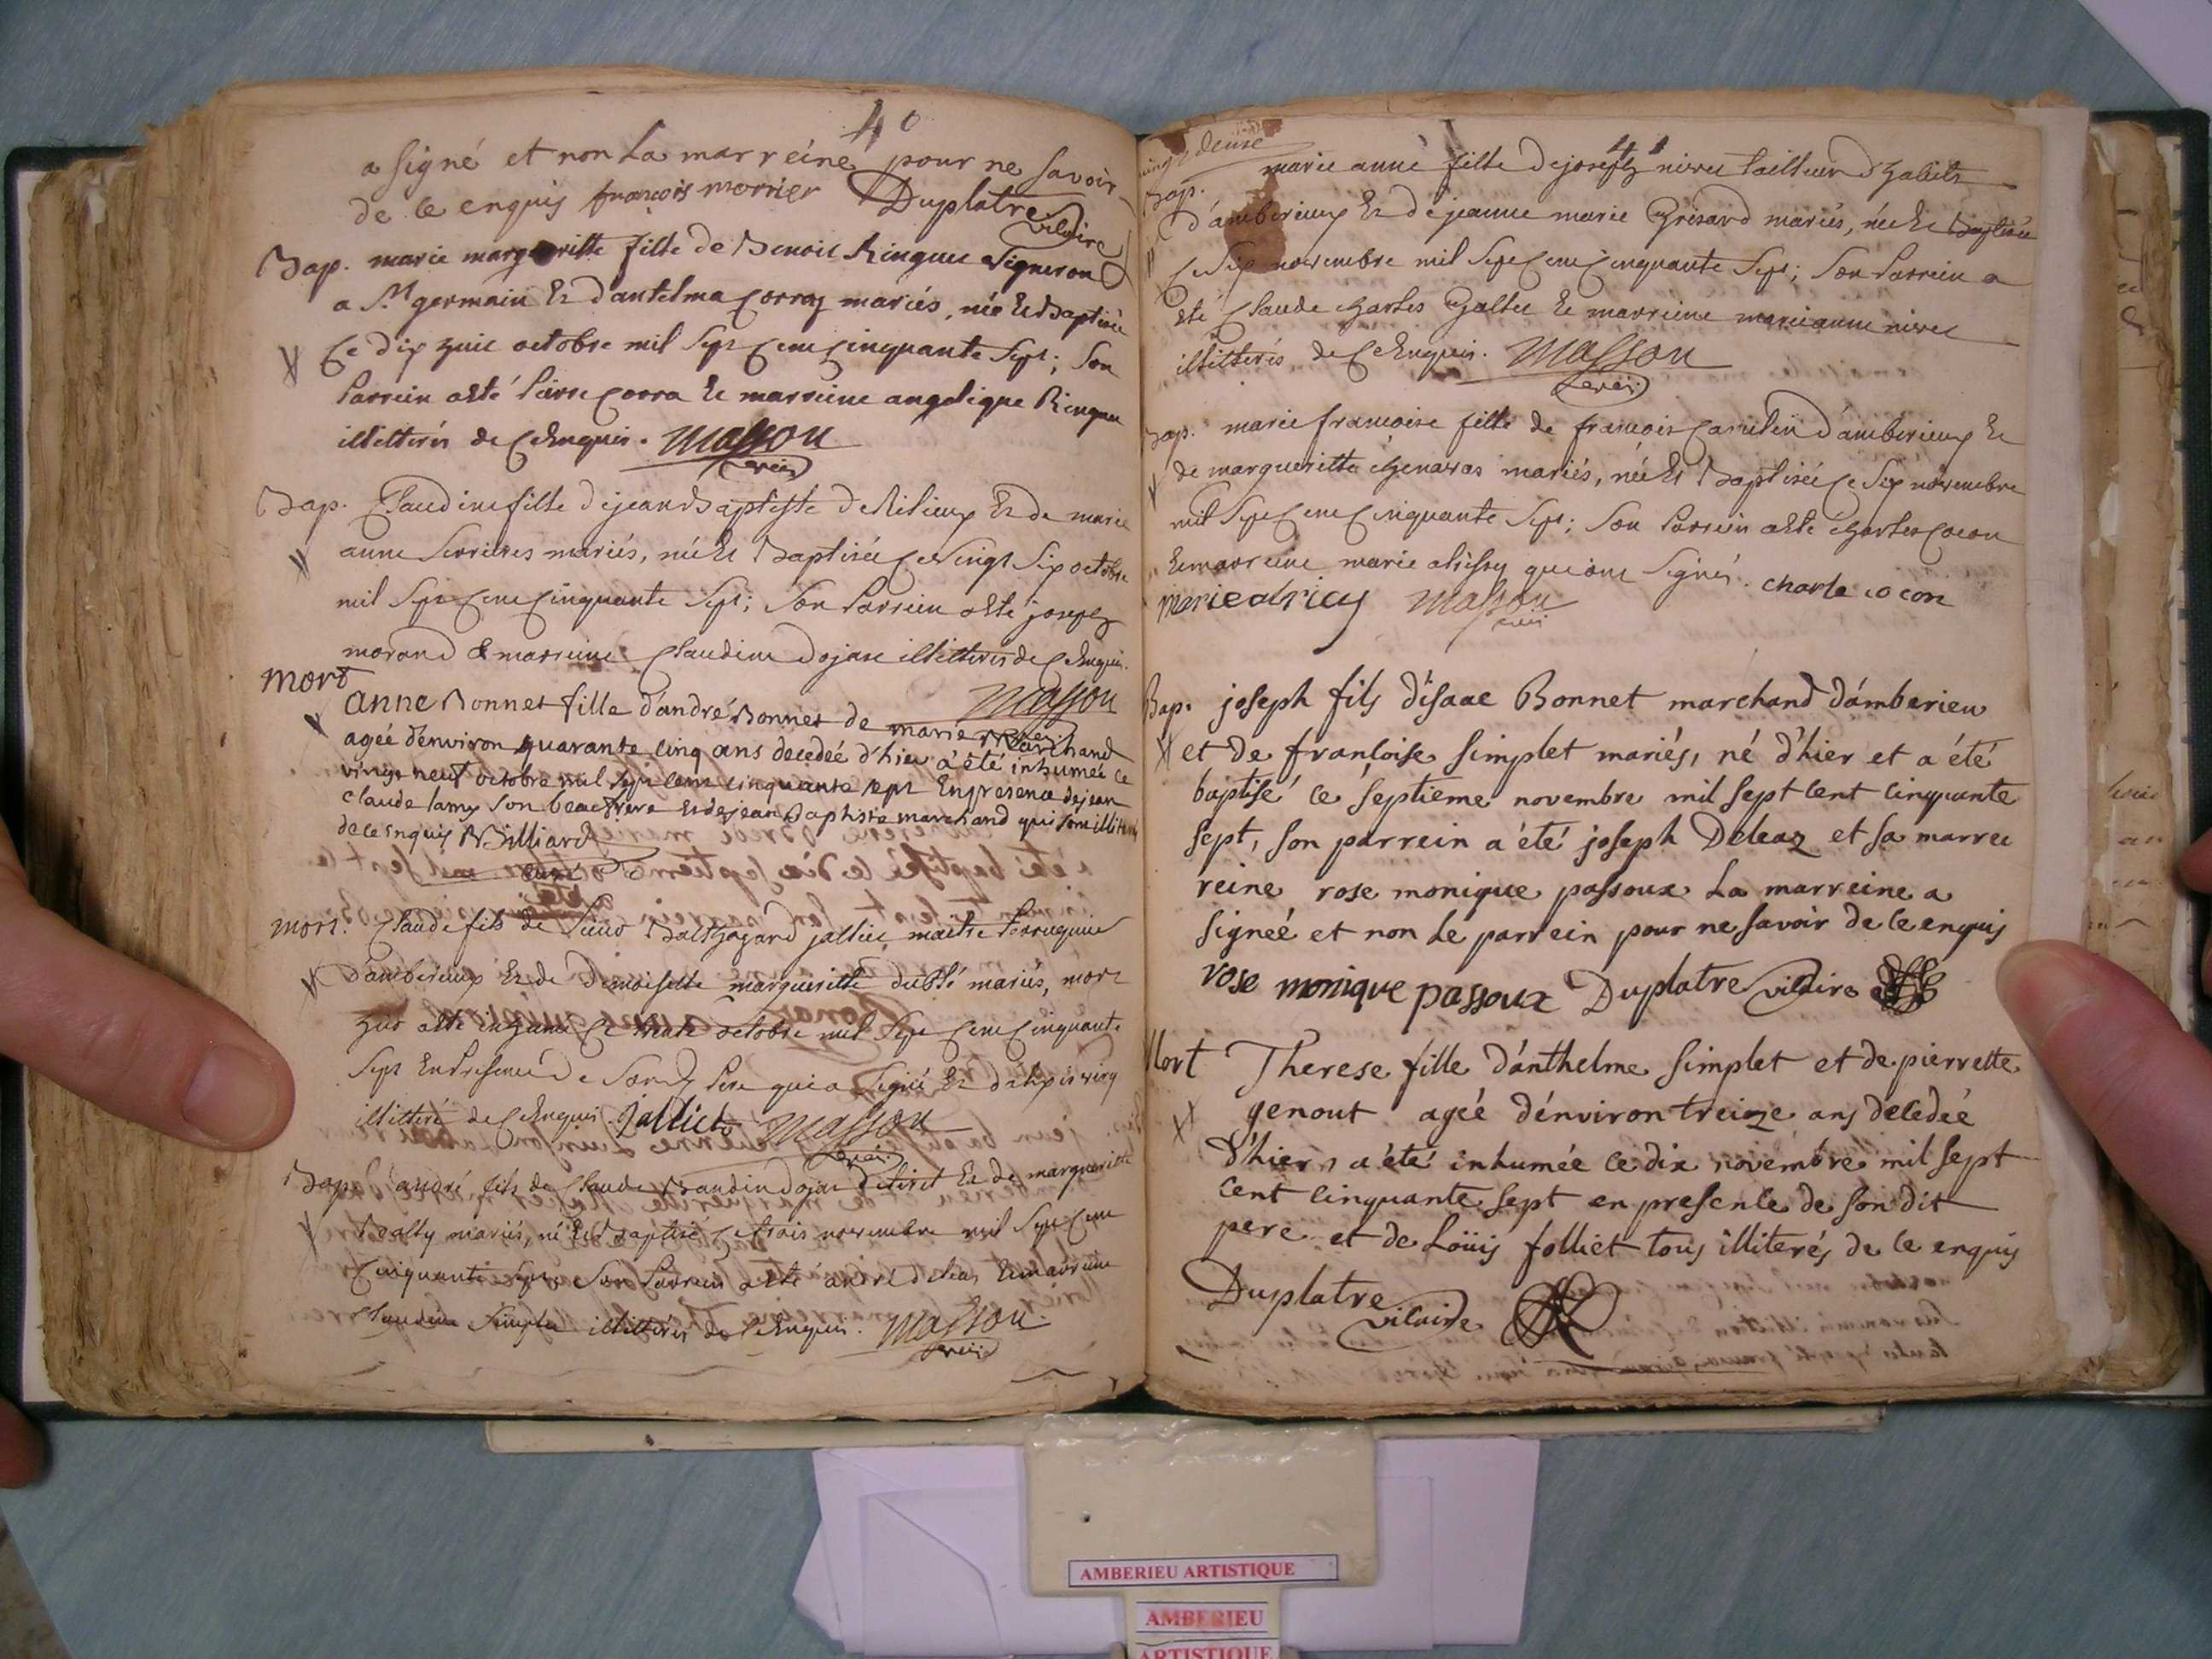 40
a signé et non la marreine pour ne savoir
de ce enquis françois morrier Duplatre vicaire
Bap. marie margueritte fille de Benoit Ringuet vigneron
a St germain et dantelma Corraz mariés, née et Baptisée
Ce dix huit octobre mil sept Cent Cinquante sept; son
Parrein a eté Pierre Corra et marreine angelique Ringuet
illitterés de Ce Enquis. Masson
curé
Bap. Claudine fille de jean Baptiste de Rilieux et de marie
anne Serrieres mariés, née et Baptisée Ce vingt six octobre
mil sept Cent Cinquante sept; son Parrein a eté joseph
morand & marreine Claudine Dojat illitterés de Ce Enquis.
Masson
mort
anne Bonnet fille d'andré Bonnet de marie Marchand
ageé d'environ quarante cinq ans decedeé d'hier a été inhumeé ce
vingt neuf octobre mil sept cent cinquante sept En presence de jean
claude lamy son beaufrere et de jean Baptiste marchand qui sont illiterés
de ce enquis Billiard
curé
mort. Claude fils de Sieur Balthazard jolliet maitre Perruquier
d'amberieux et de Demoiselle margueritte mariés, mort
hier a eté inhumé Ce trente octobre mil sept Cent Cinquante
sept En Presence de Son dt Pere qui a signé et
illitteré de Ce Enquis. jolliet Masson
curé
Bap. andré fils de Claude Baudin Dojat et de margueritte
mariés, né et Baptisé Ce trois novembre mil sept Cent
Cinquante sept. Son Parrein a eté andré Deleaz et marreine
Claudine Simplet illitterés de Ce Enquis. Masson
curé
41
Bap. marie anne fille de joseph nivet tailleur d'habits
d'amberieux et de jeanne marie Grisard mariés, née et Baptisée
Ce Six novembre mil sept Cent Cinquante sept; son Parrein a
eté Claude Charles et marreine marie anne nivet
illitterés de Ce Enquis. Masson
curé
Bap. marie françoise fille de françois d'amberieux et
de margueritte Chenavas mariés, née et Baptisée Ce Six novembre
mil sept Cent Cinquante sept; son Parrein a eté Charles Cocon
et marreine marie qui ont signés. charle cocon
marie alricy Masson
curé
Bap. joseph fils d'isaac Bonnet marchand d'amberieu
et de françoise simplet mariés, né d'hier et a été
baptisé ce septieme novembre mil sept cent cinquante
sept, son parrein a été joseph Deleaz et sa marre
reine rose monique passoux la marreine a
signeé et non le parrein pour ne savoir de ce enquis
rose monique passoux Duplatre vicaire
Mort Therese fille d'anthelme simplet et de pierrette
genout ageé d'environ treize ans decedeé
d'hier, a été inhumée ce dix novembre mil sept
cent cinquante sept en presence de son dit
pere et de Loüis folliet tous illiterés de ce enquis
Duplatre vicaire
AMBERIEU ARTISTIQUE
AMBERIEU
ARTISTIQUE